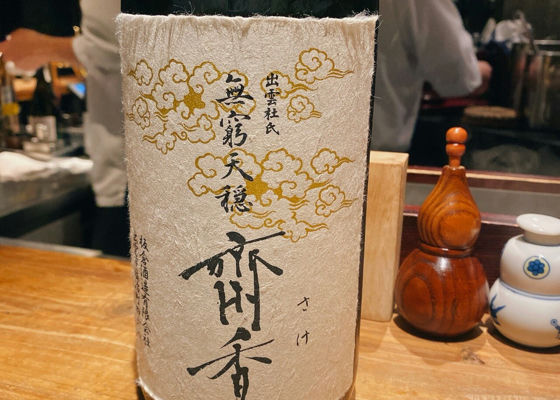 出雲杜氏
無窮天穏
齋香
さけ
板倉酒造有限会社